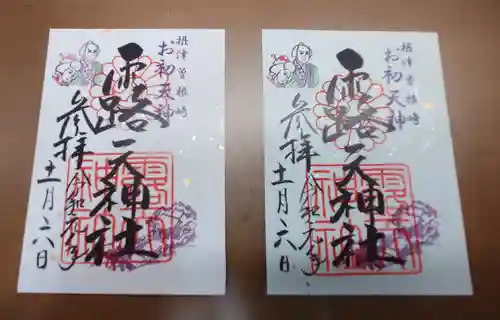 摂津 曽根崎
お初天神
露天神社
参拝
令和元年
十一月六日
摂津 曽根崎
お初天神
露天神社
参拝
令和元年
十一月六日